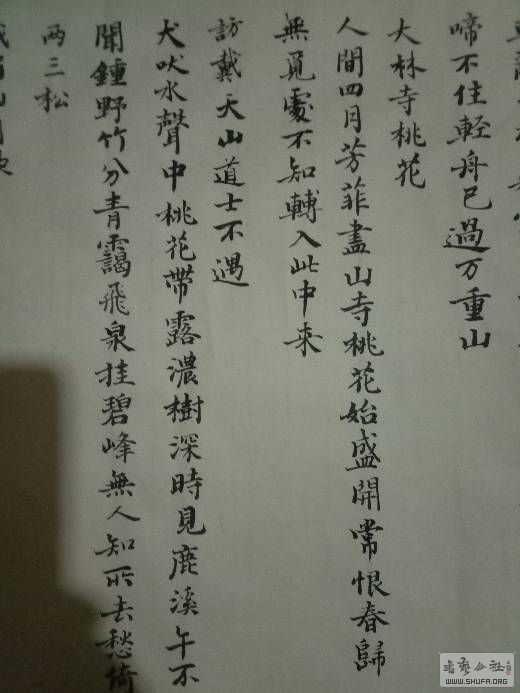 啼不住輕舟已過万重山
大林寺桃花
人間四月芳菲盡山寺桃花始盛開常恨春歸
無覓處不知轉入此中来
訪戴天山道士不遇
犬吠水聲中桃花帶露濃樹深時見鹿溪午不
聞鍾野竹分青靄飛泉挂碧峰無人知所去愁倚
两三松
书艺公社
WWW.SHUFA.ORG